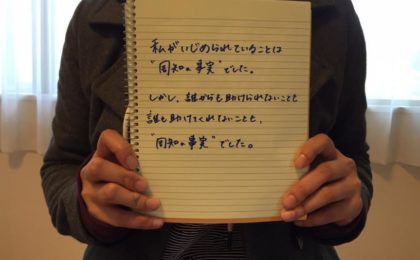 私がいじめられていることは
"周知の事実"でした。
しかし、誰からも助けられないことも
誰も助けてくれないことも、
"周知の事実"でした。